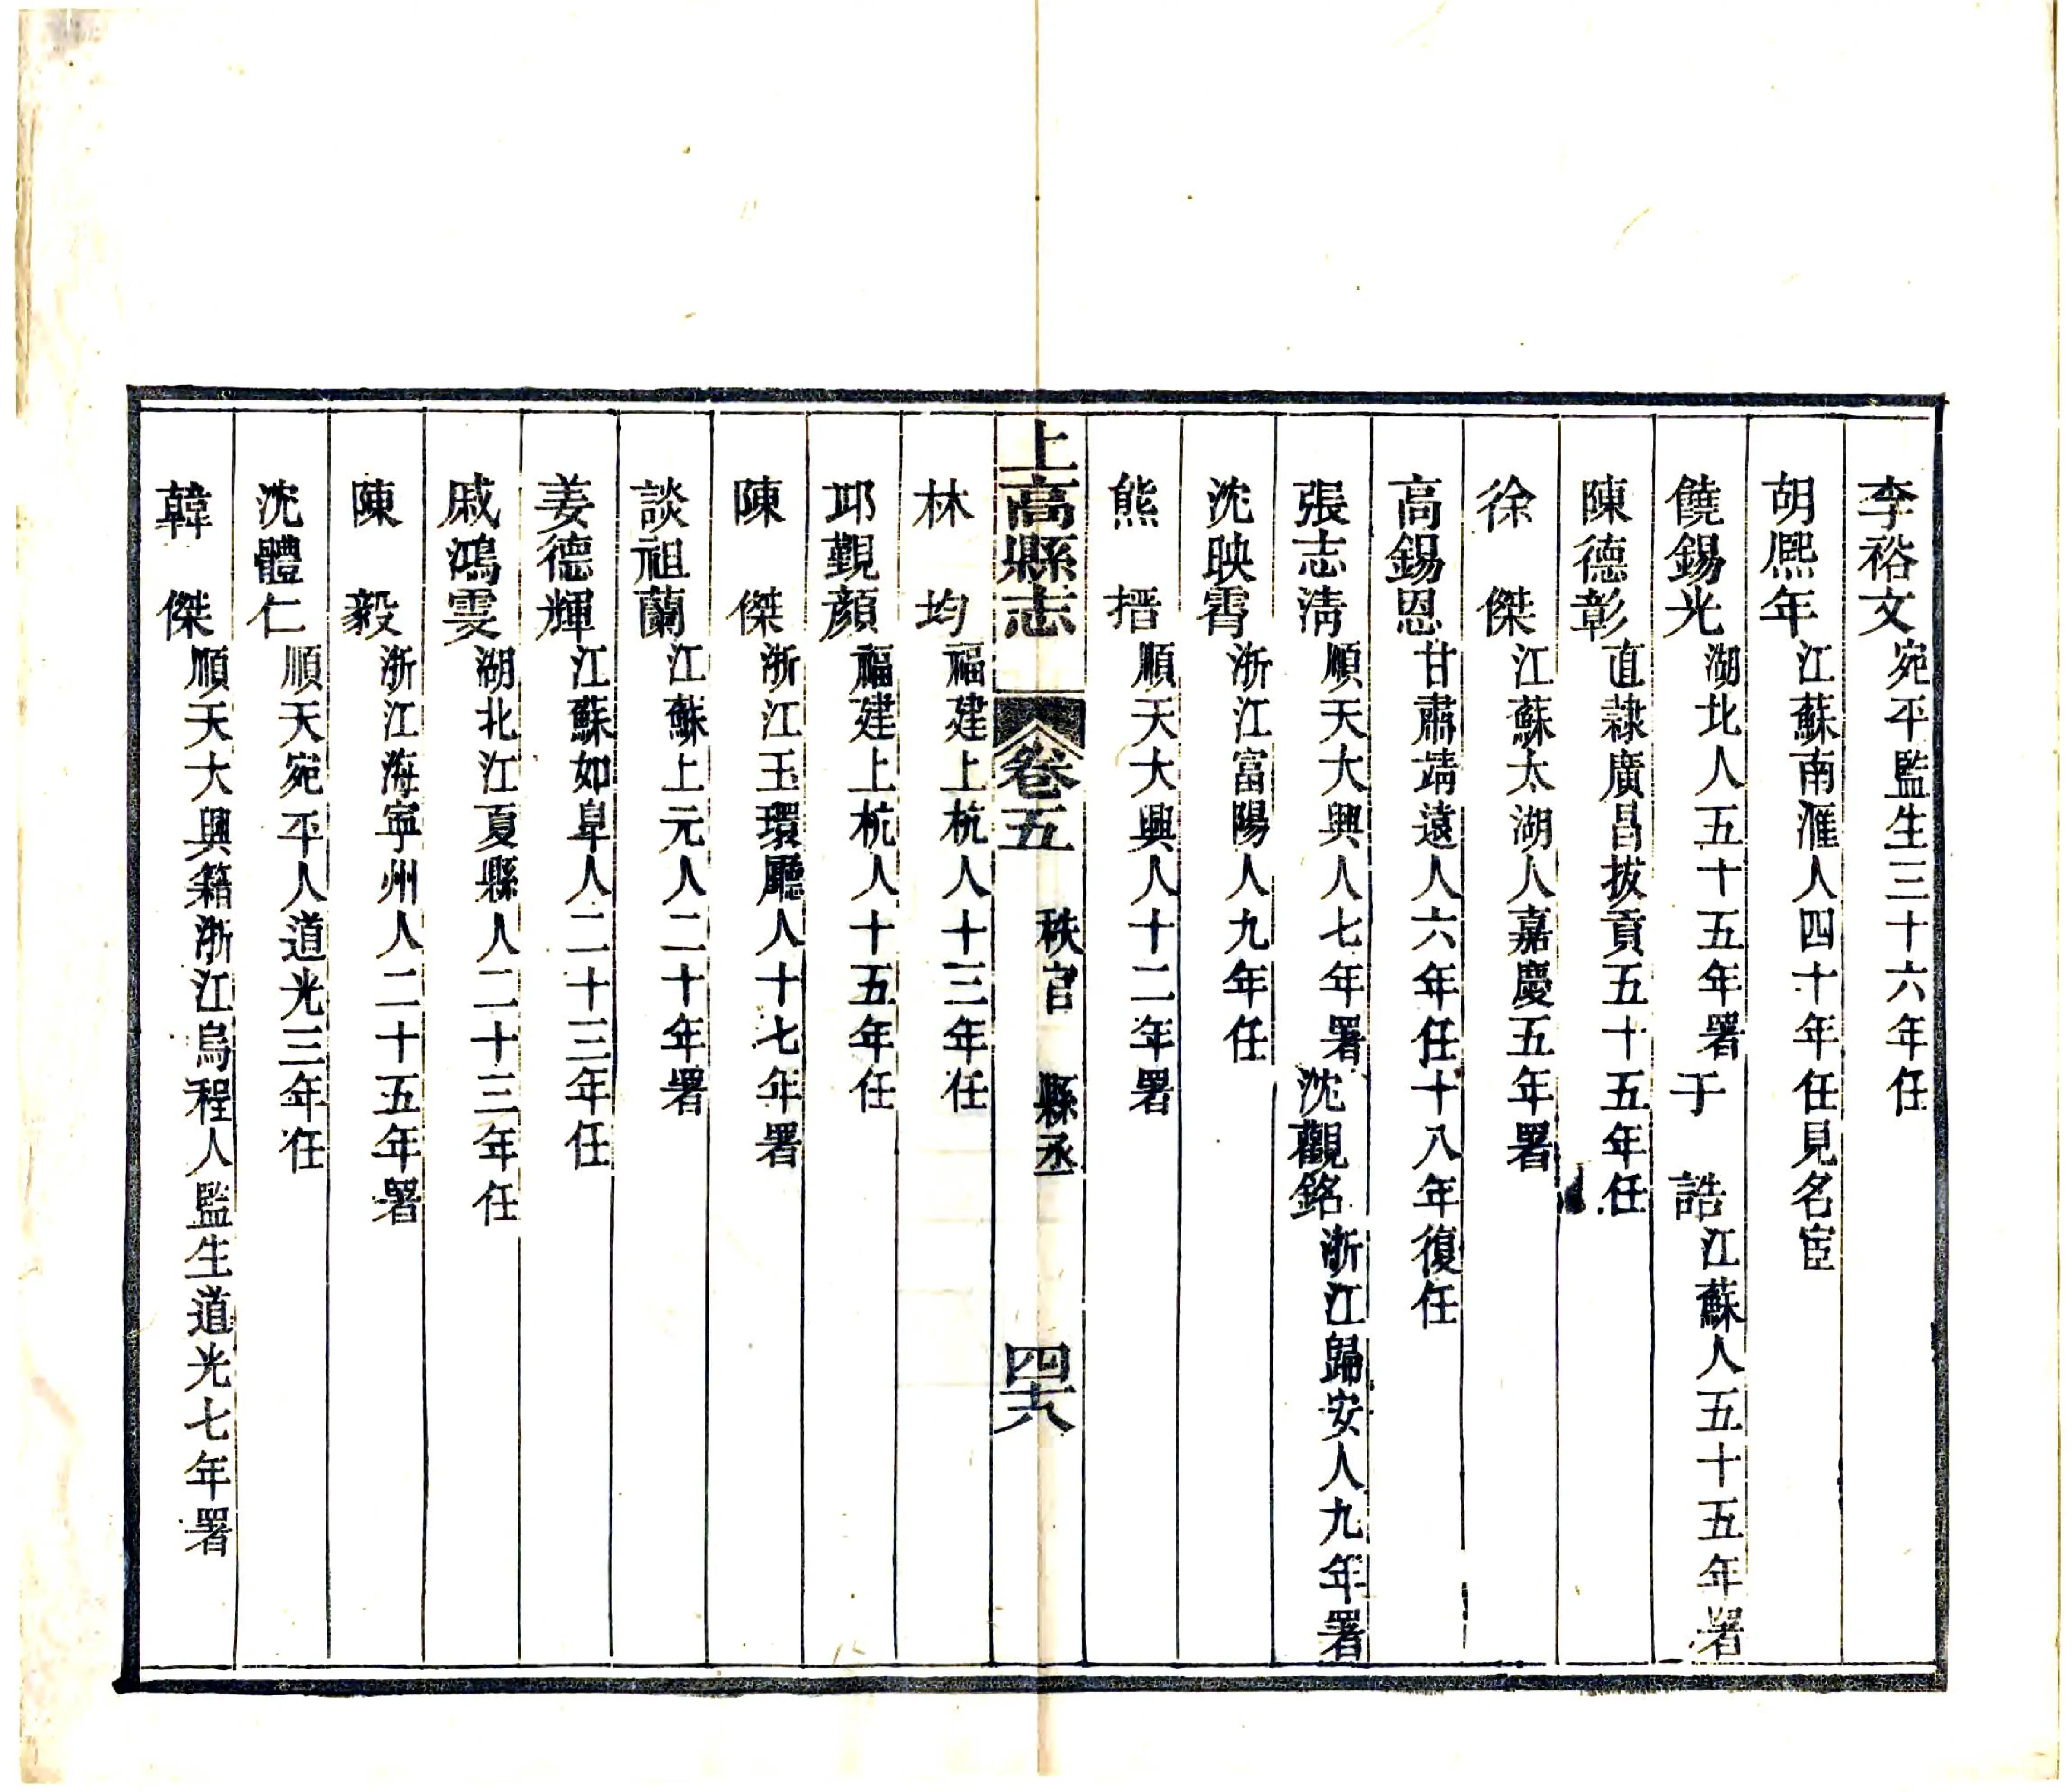 李裕文宛平監生三十六年任
胡熈年江蘇南滙人四十年任見名宦
饒錫光湖北人五十五年署于　誥江蘇人五十五年署
陳德彰直隸廣昌拔貢五十五年任
徐　傑江蘇太湖人嘉慶五年署
高錫恩甘肅靖遠人六年任十八年復任
張志淸順天大興人七年署沈觀銘浙江歸安人九年署
沈映霄浙江富陽人九年任
熊　搢順天大興人十二年署
上高縣志　卷五　秩官　縣丞　四六
林　均福建上杭人十三年任
邛覲顔福建上杭人十五年任
陳　傑浙江玉環廳人十七年署
談祖蘭江蘇上元人二十年署
姜德輝江蘇如臯人二十三年任
戚鴻雯湖北江夏縣人二十三年任
陳　毅浙江海寧州人二十五年署
沈體仁順天宛平人道光三年任
韓　傑順天大興籍浙江烏程人監生道光七年署